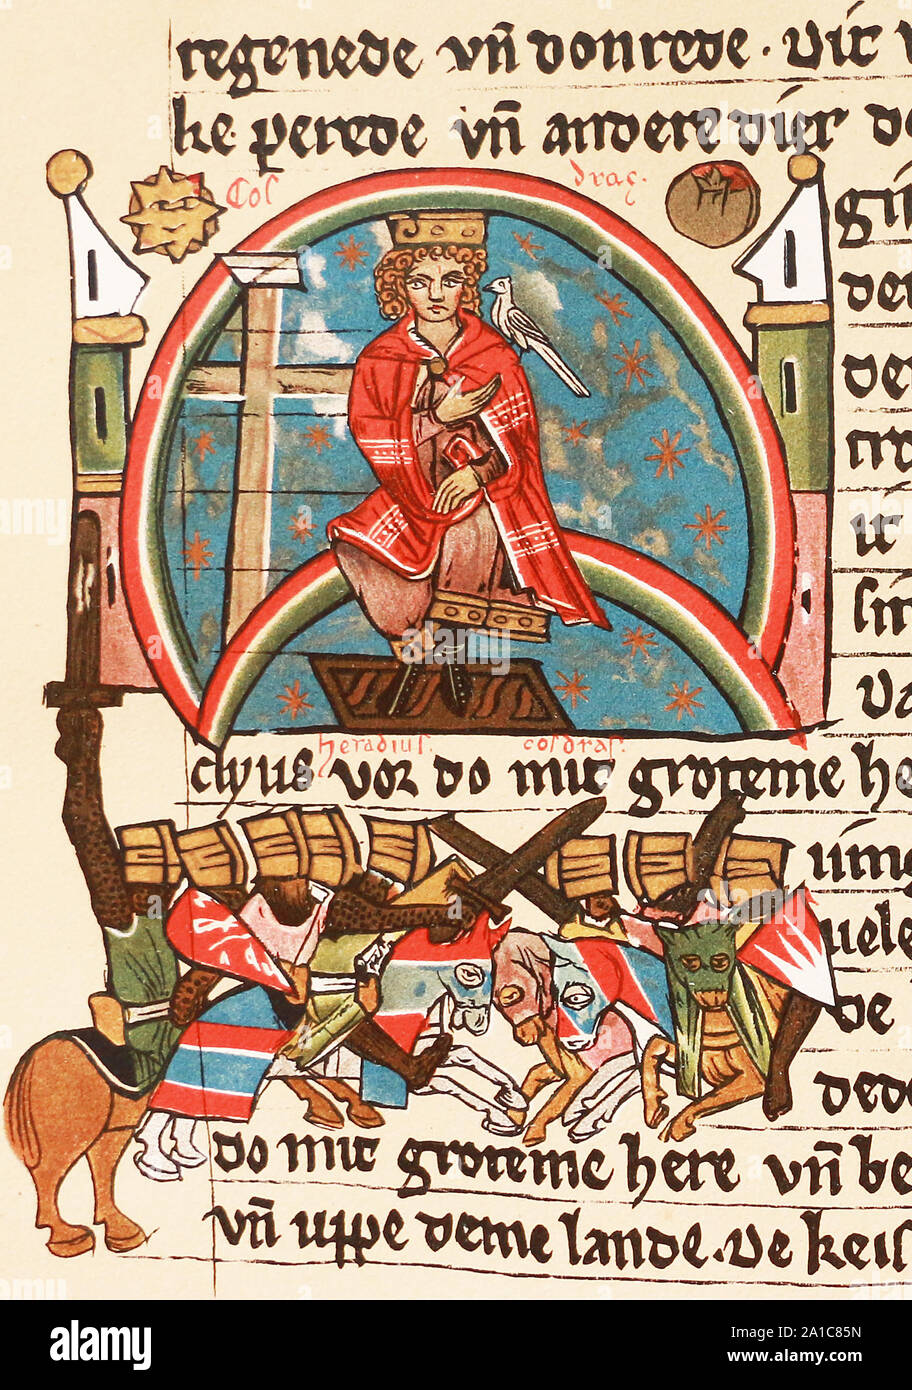 regenede vn̄ donrede · Vic
ke perede vn̄ andere dier do
Col drac.
gin
der
de
cro
it
sin
Va
heradius. cosdras.
clyus vor do mit groteme he
ume
uele
de
dede
do mit groteme here vn̄ be
vn̄ uppe deme lande. De keis
alamy
Image ID: 2A1C85N
www.alamy.com